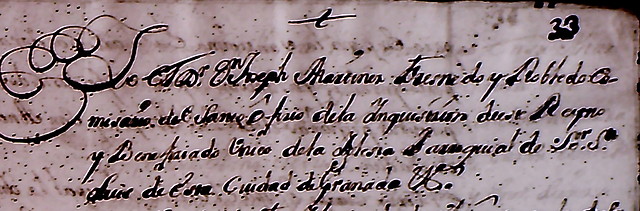 33
Yo El Dr. Dn Joseph Martinez Fresnedo y Robledo Co
misario del Santo Ofizio de la Inquisizion de este Reyno
y Beneficiado Unico de la Iglesia Parroquial de Sor. Sn.
Luis de esta Ciudad de Granada